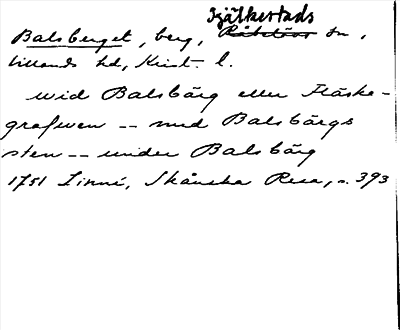 Fjälkestads
Balsberget, berg, Råbelöv sn,
Villands hd, Krist. l.
wid Balsbärg eller Fläske-
grafwen -- med Balsbärgs
sten -- under Balsbärg
1751 Linné, Skånska Resa, s. 393